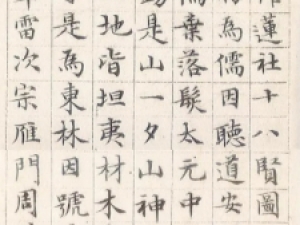 蓮社十八賢圖
為儒因聽道安
棄落髮太元中
是山一夕山神
地皆坦夷材木
是為東林因號
雷次宗雁門周